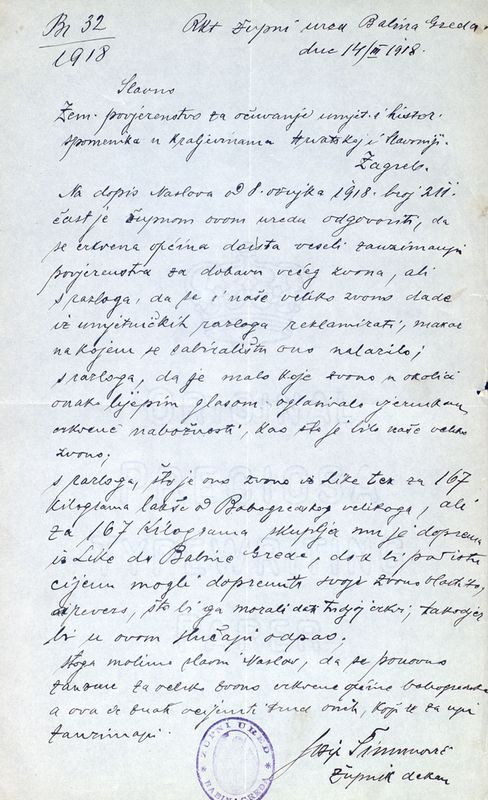 Br 32
1918
Rkt župni ured Babina Greda.
dne 14/III 1918.
Slavno
Zem. povjerenstvo za očuvanje umjet. i histor.
spomenika u Kraljevinama Hrvatskoj i Slavoniji.
Zagreb.
Na dopis Naslova od 8. ožujka 1918. broj 211.
čast je župnom ovom uredu odgovoriti, da
se crkvena općina doista veseli zauzimanju
povjerenstva za dobavu većeg zvona, ali
s razloga, da se i naše veliko zvono dade
iz umjetničkih razloga reklamirati, makar
na kojem se sabiralištu ono nalazilo;
s razloga, da je malo koje zvono u okolici
onako lijepim glasom oglašivalo vjernikom
crkvene nabožnosti, kao što je bilo naše veliko
zvono;
s razloga, što je ono zvono iz Like tek za 167
kilograma lakše od Babogredskog velikoga, ali
za 167 kilograma skuplja mu je doprema
iz Like do Babine Grede, dok bi po istu
cijenu mogli dopremiti svoje zvono vlastito,
a revers, što bi ga morali dati tudjoj crkvi, takodjer
bi u ovom slučaju odpao;
stoga molimo slavni Naslov, da se ponovno
zauzme za veliko zvono crkvene općine babogredske
a ova će znati ocijeniti trud onih, koji se za nju
zauzimaju.
Josip
župnik dekan
ŽUPNI URED
BABINA GREDA